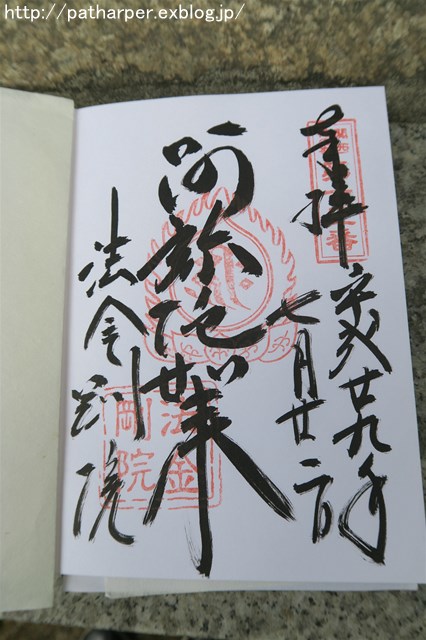 http://patharper.exblog.jp/
奉拝
平成廿九年
七月廿二日
阿弥陀如来
法金剛院
法金
剛院